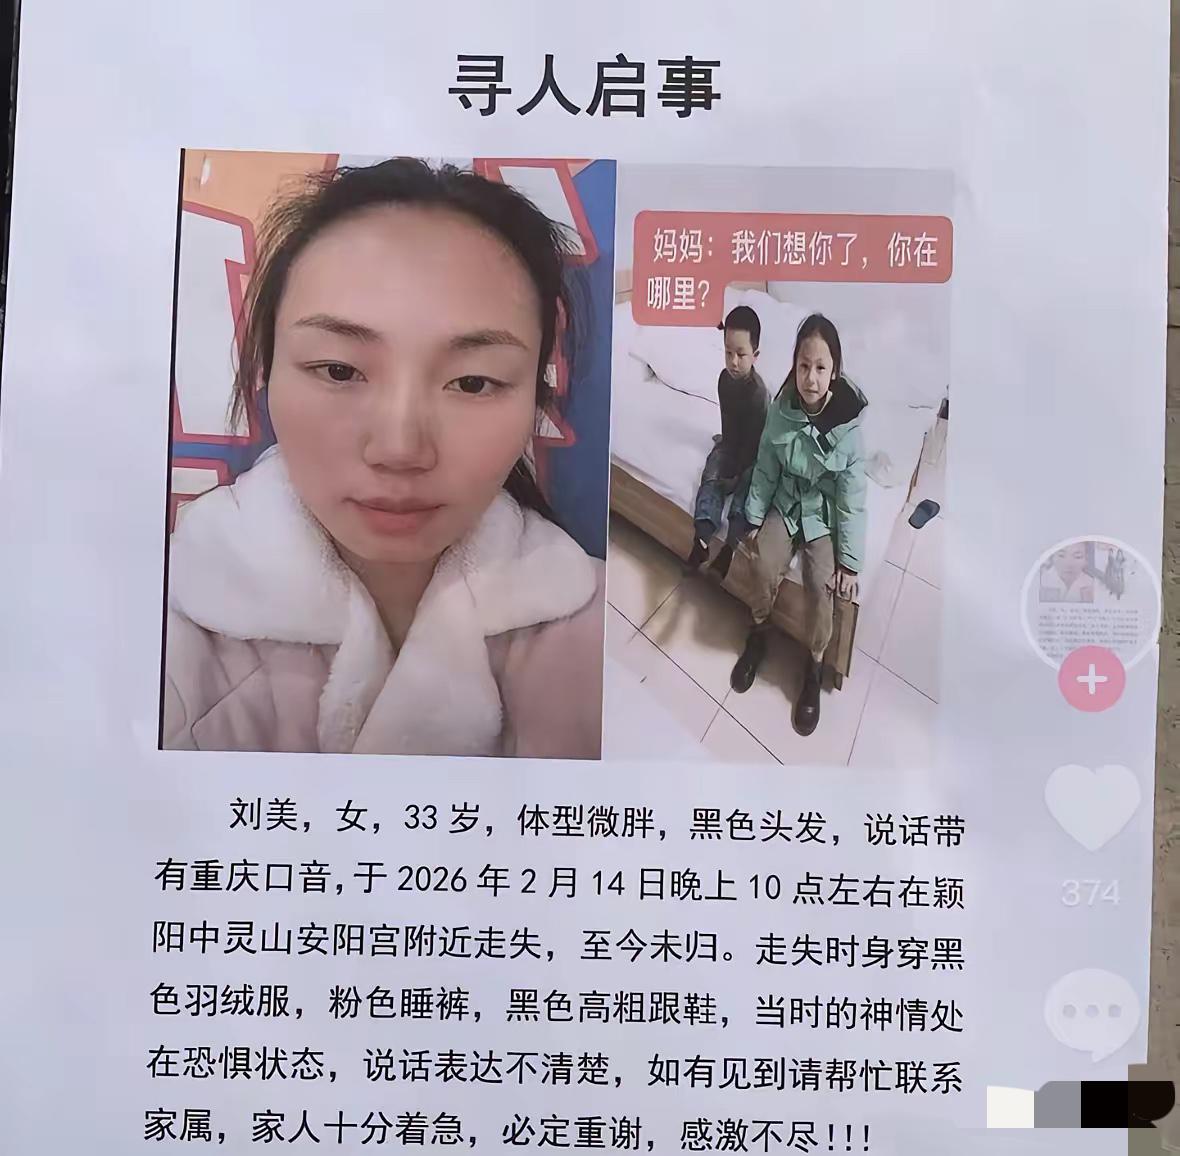 寻人启事
妈妈：我们想你了，你在
哪里？
刘美，女，33岁，体型微胖，黑色头发，说话带
有重庆口音，于2026年2月14日晚上10点左右在颖
阳中灵山安阳宫附近走失，至今未归。走失时身穿黑
色羽绒服，粉色睡裤，黑色高粗跟鞋，当时的神情处
在恐惧状态，说话表达不清楚，如有见到请帮忙联系
家属，家人十分着急，必定重谢，感激不尽！！！
374